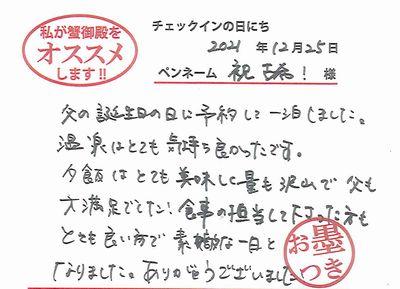 私が蟹御殿を
オススメ
します!!
チェックインの日にち
2021年12月25日
ペンネーム 祝古希! 様
父の誕生日の日に予約して一泊しました。
温泉はとても気持ち良かったです。
夕飯はとても美味しく量も沢山で父も
大満足でした! 食事の担当して下さった方も
とても良い方で素敵な一日と
なりました。ありがとうございました
お墨
つき